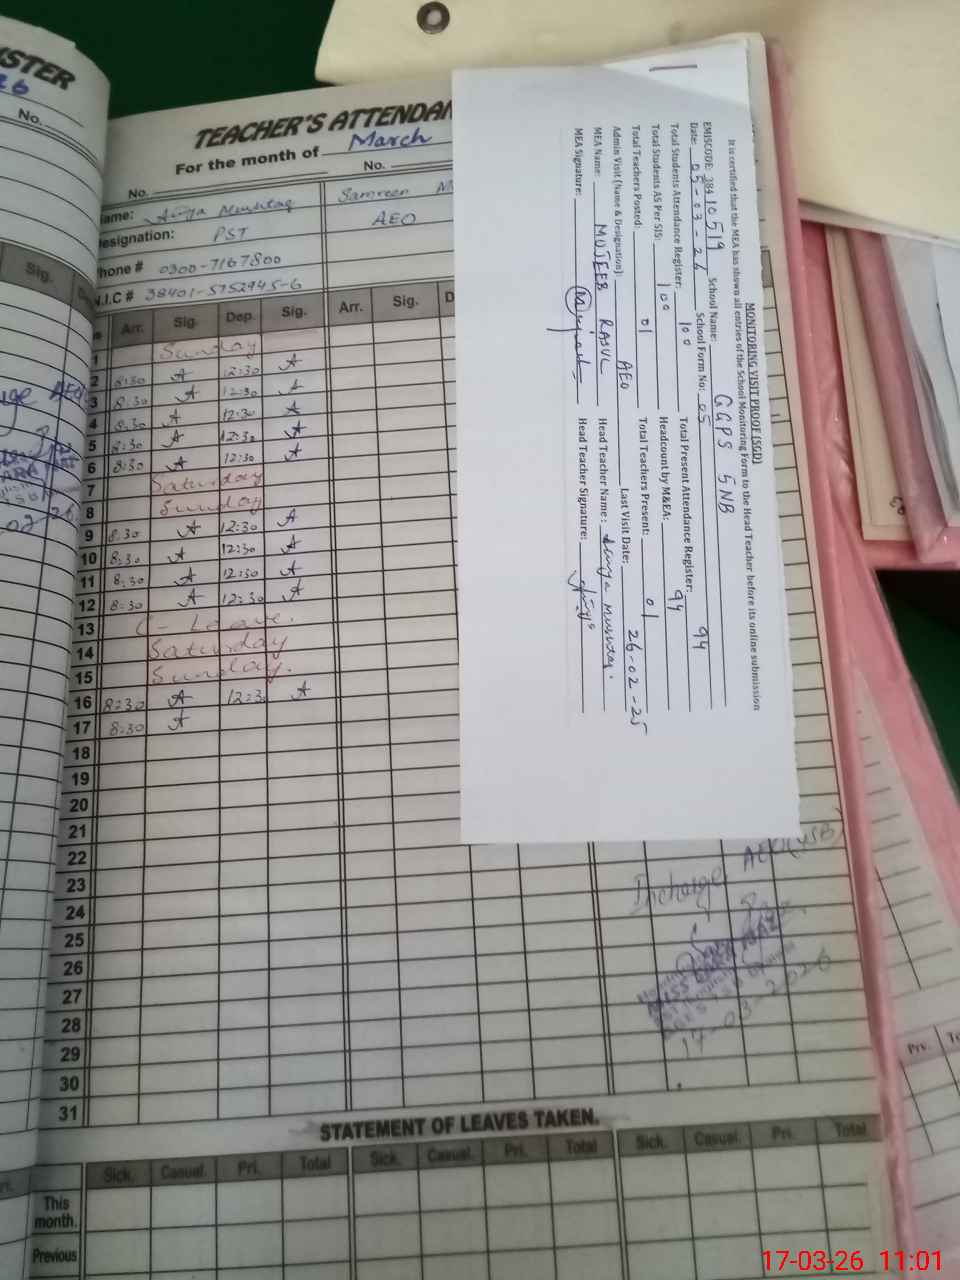 STER
26
No.
Sig.
TEACHER'S ATTENDAN
For the month of March
No. No.
ame: Musntaq Samreen M
esignation: PST AEO
hone # 0300-7167800
N.I.C # 38401-5752945-6
Arr. Sig. Dep. Sig. Arr. Sig. D
1 Sunday
2 8:30 A 12:30 A
3 8:30 A 12:30 A
4 8:30 A 12:30 A
5 8:30 A 12:30 A
6 8:30 A 12:30 A
7 Saturday
8 Sunday
9 8:30 A 12:30 A
10 8:30 A 12:30 A
11 8:30 A 12:30 A
12 8:30 A 12:30 A
13 C - Leave.
14 Saturday
15 Sunday.
16 8:30 A 12:30 A
17 8:30 A
18
19
20
21
22
23
24
25
26
27
28
29
30
31
MONITORING VISIT PROOF (SGD)
It is certified that the MEA has shown all entries of the School Monitoring Form to the Head Teacher before its online submission
EMISCODE: 38410519 School Name: GGPS 5NB
Date: 05-03-26 School Form No: 05
Total Students Attendance Register: 100 Total Present Attendance Register: 94
Total Students AS Per SIS: 100 Headcount by M&EA: 94
Total Teachers Posted: 01 Total Teachers Present: 01
Admin Visit (Name & Designation): AEO Last Visit Date: 26-02-25
MEA Name: MUJEEB RASUL Head Teacher Name:
MEA Signature: Head Teacher Signature:
Incharge AEO
03-2026
STATEMENT OF LEAVES TAKEN.
Sick. Casual. Pri. Total Sick. Casual. Pri. Total Sick. Casual. Pri. Total
This month.
Previous
Prv.
17-03-26 11:01